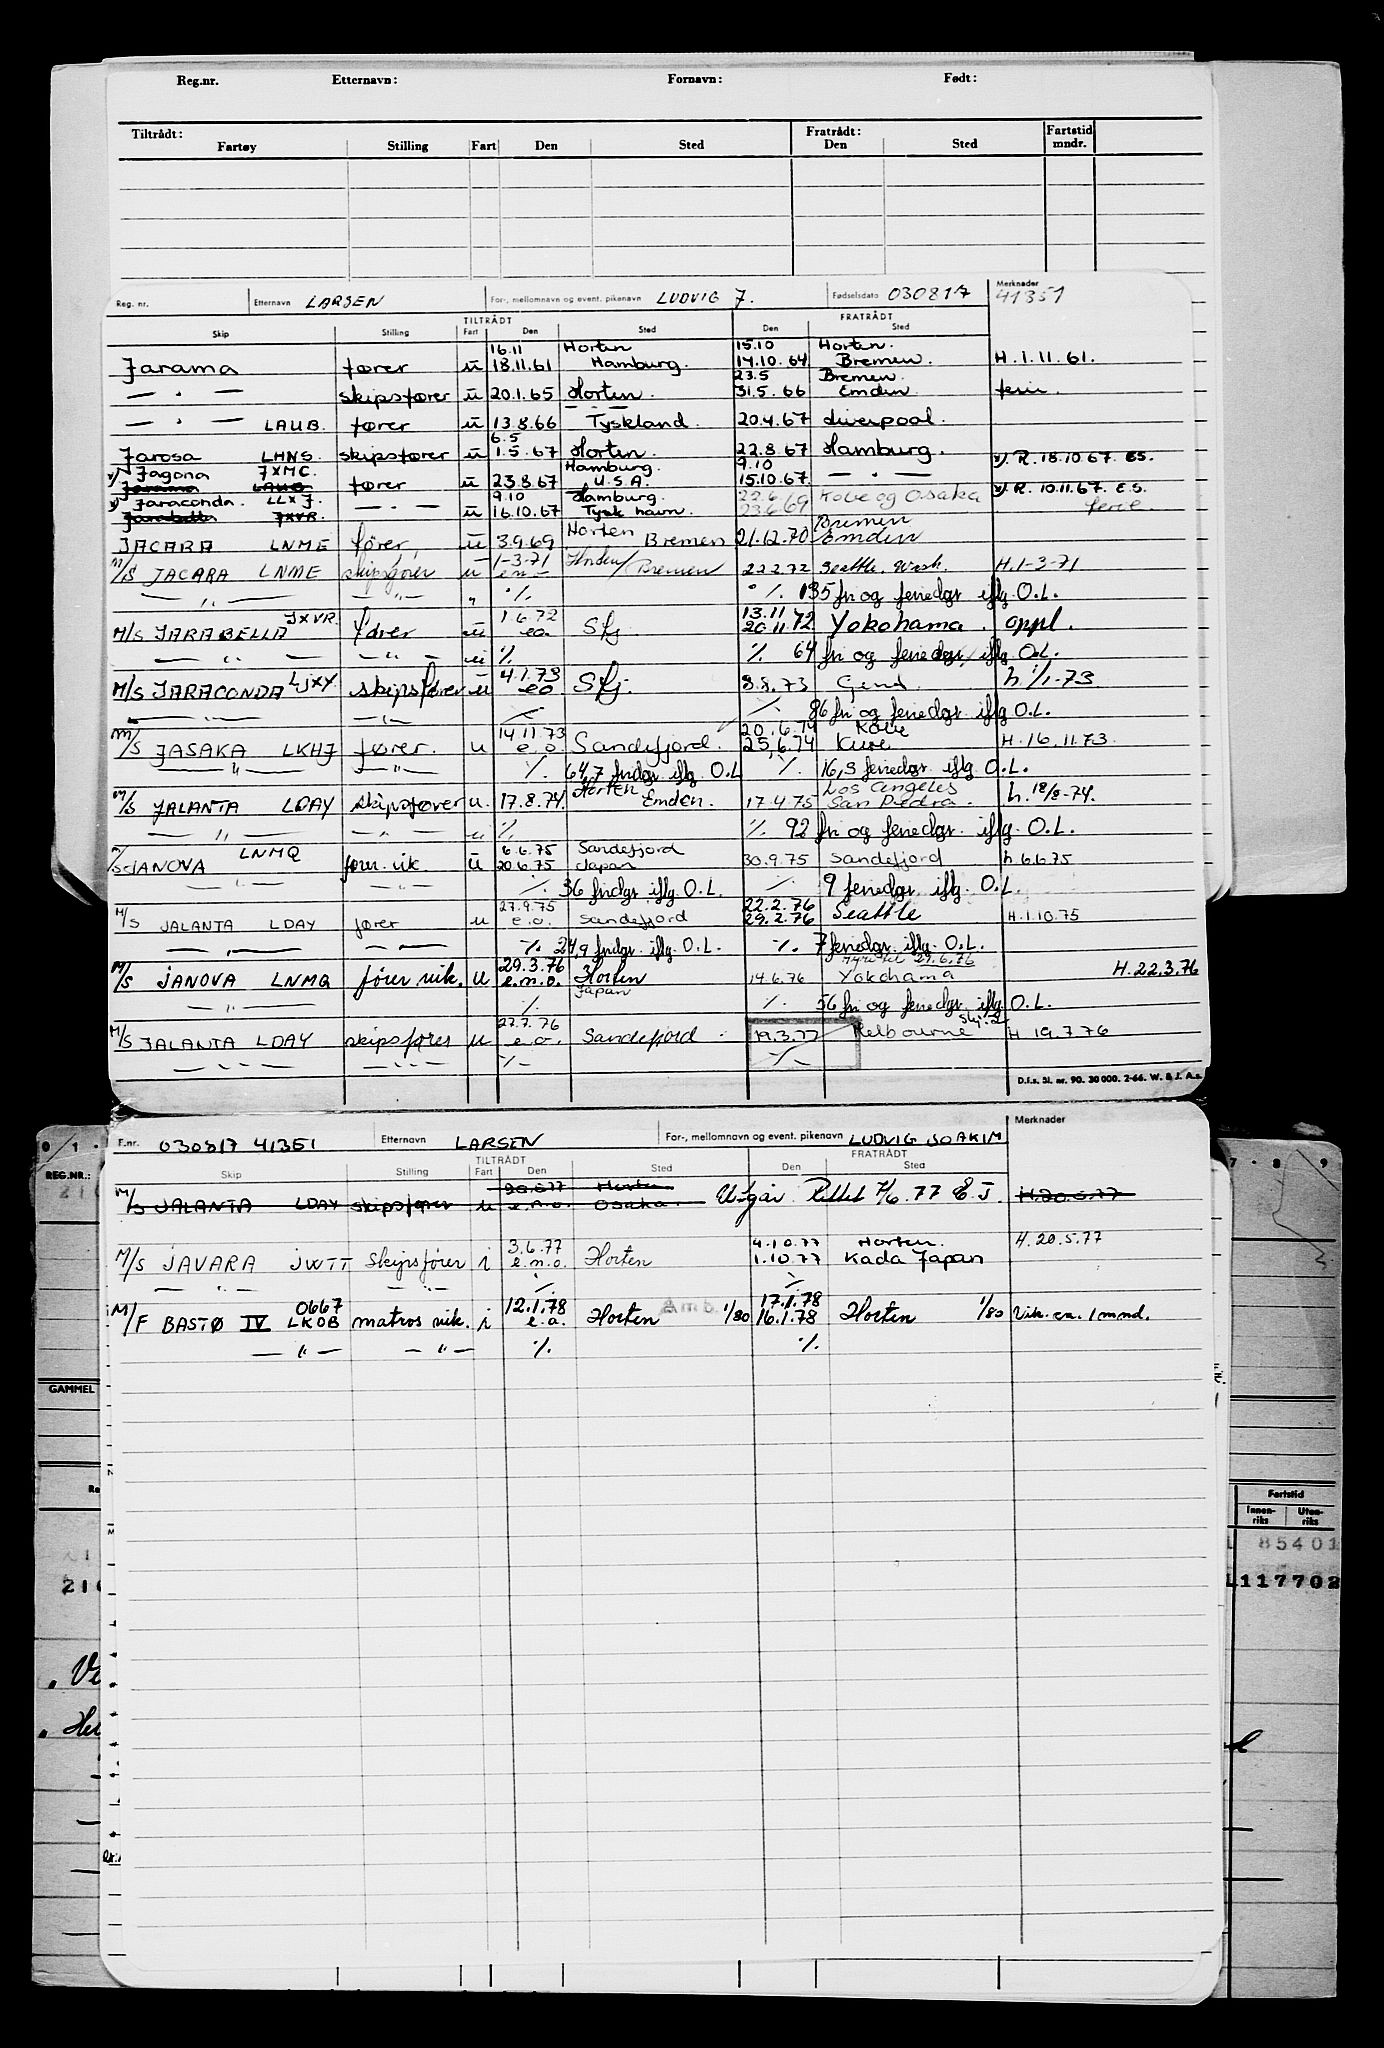 Reg.nr. Etternavn: Fornavn: Født:
Tiltrådt: Fratrådt: Fartstid
Fartøy Stilling Fart Den Sted Den Sted mndr.
Reg. nr. Etternavn LARSEN For-, mellomnavn og event. pikenavn LUDVIG J. Fødselsdato 030817 Merknader 41351
TILTRÅDT FRATRÅDT
Skip Stilling Fart Den Sted Den Sted
16.11 Horten 15.10 Horten.
Jarama fører u 18.11.61 Hamburg. 14.10.64 Bremen. H.1.11.61.
23.5 Bremen.
— " — skipsfører u 20.1.65 Horten. 31.5.66 Emden ferie.
— " — LAUB. fører u 13.8.66 Tyskland. 20.4.67 Liverpool.
6.5
Jarosa LHNS. skipsfører u 1.5.67 Horten. 22.8.67 Hamburg.
x) Jagona JXMC. Hamburg. 9.10 x) R. 18.10.67. ES.
Jarama LAUB fører u 23.8.67 U.S.A. 15.10.67 — " —
x) Jaraconda. LLXJ. 9.10 Hamburg. 22.6 Kobe og Osaka x) R. 10.11.67. E.S.
Jarabella JXVR. — " — u 16.10.67 Tysk havn. 23.6.69 ferie.
JACARA LNME fører u 3.9.69 Horten Bremen 21.12.70 Bremen Emden
M/S JACARA LNME skipsfører u 1-3-71 e.n.- Horten/Bremen 22.2.72 Seattle. Wash. H.1-3-71
— " — — " — " % % 135 fri og feriedgr iflg O.L.
JXVR. 1.6.72 13.11
M/S JARABELLA fører u eo Sfj 20.11.72 Yokohama. oppl.
— " — — " — u % % 64 fri og feriedgr. iflg O.L.
M/S JARACONDA LJXY skipsfører u 4.1.73 eo Sfj. 8.8.73 Gend. h. 1/1-73
— " — — " — % % 86 fri og feriedgr iflg O.L.
14.11.73 20.6.74 Kobe
M/S JASAKA LKHJ fører. u e.o Sandefjord. 25.6.74 Kure H.16.11.73
— " — — " — % 64,7 fridgr iflg. O.L % 16,3 feriedgr iflg O.L.
M/S JALANTA LDAY skipsfører u. 17.8.74. Horten Emden. 17.4.75 Los Angeles San Pedro. h. 18/8-74.
— " — — " — u % % 92 fri og feriedgr. iflg. O.L.
LNMQ 6.6.75 Sandefjord
M/S JANOVA fører. vik. u 20.6.75 Japan 30.9.75 Sandefjord h 6.6.75
— " — — " — % 36 fridgr iflg O.L. % 9 feriedgr. iflg. O.L.
27.9.75 22.2.76
M/S JALANTA LDAY fører u e.o. Sandefjord 29.2.76 Seattle H.1.10.75
— " — — " — % 24,9 fridgr. iflg. O.L. % 7 feriedgr. iflg. O.L.
29.3.76 29.6.76
M/S JANOVA LNMQ fører vik. u e.m.o. Horten 14.6.76 Yokohama H.22.3.76
Japan
— " — % % 56 fri og feriedgr. iflg O.L.
27.7.76
M/S JALANTA LDAY skipsfører u e.o. Sandefjord 19.3.77 Melbourne H 19.7.76
— " — — " — % %
D.f.s. Bl. nr. 90. 30 000. 2-66. W. & J. A.s.
F.nr. 030817 41351 Etternavn LARSEN For-, mellomnavn og event. pikenavn LUDVIG JOAKIM Merknader
TILTRÅDT FRATRÅDT
Skip Stilling Fart Den Sted Den Sted
20.5.77 Horten
M/S JALANTA LDAY skipsfører u e.m.o. Osaka. Utgår. Rettet 7/6.77 E.J. H.20.5.77
3.6.77 4.10.77 Horten. H.20.5.77
M/S JAVARA JWTT Skipsfører i e.m.o. Horten 1.10.77 Kada Japan
— " — — " — % %
0667 12.1.78 17.1.78
M/F BASTØ IV LKOB matros vik. i e.a. Horten Amb. 1/80 16.1.78 Horten 1/80 Vik. ca. 1 mnd.
— " — — " — % %
REG.NR.:
GAMMEL
Fartstid
Innen-riks Uten-riks
85401
117702